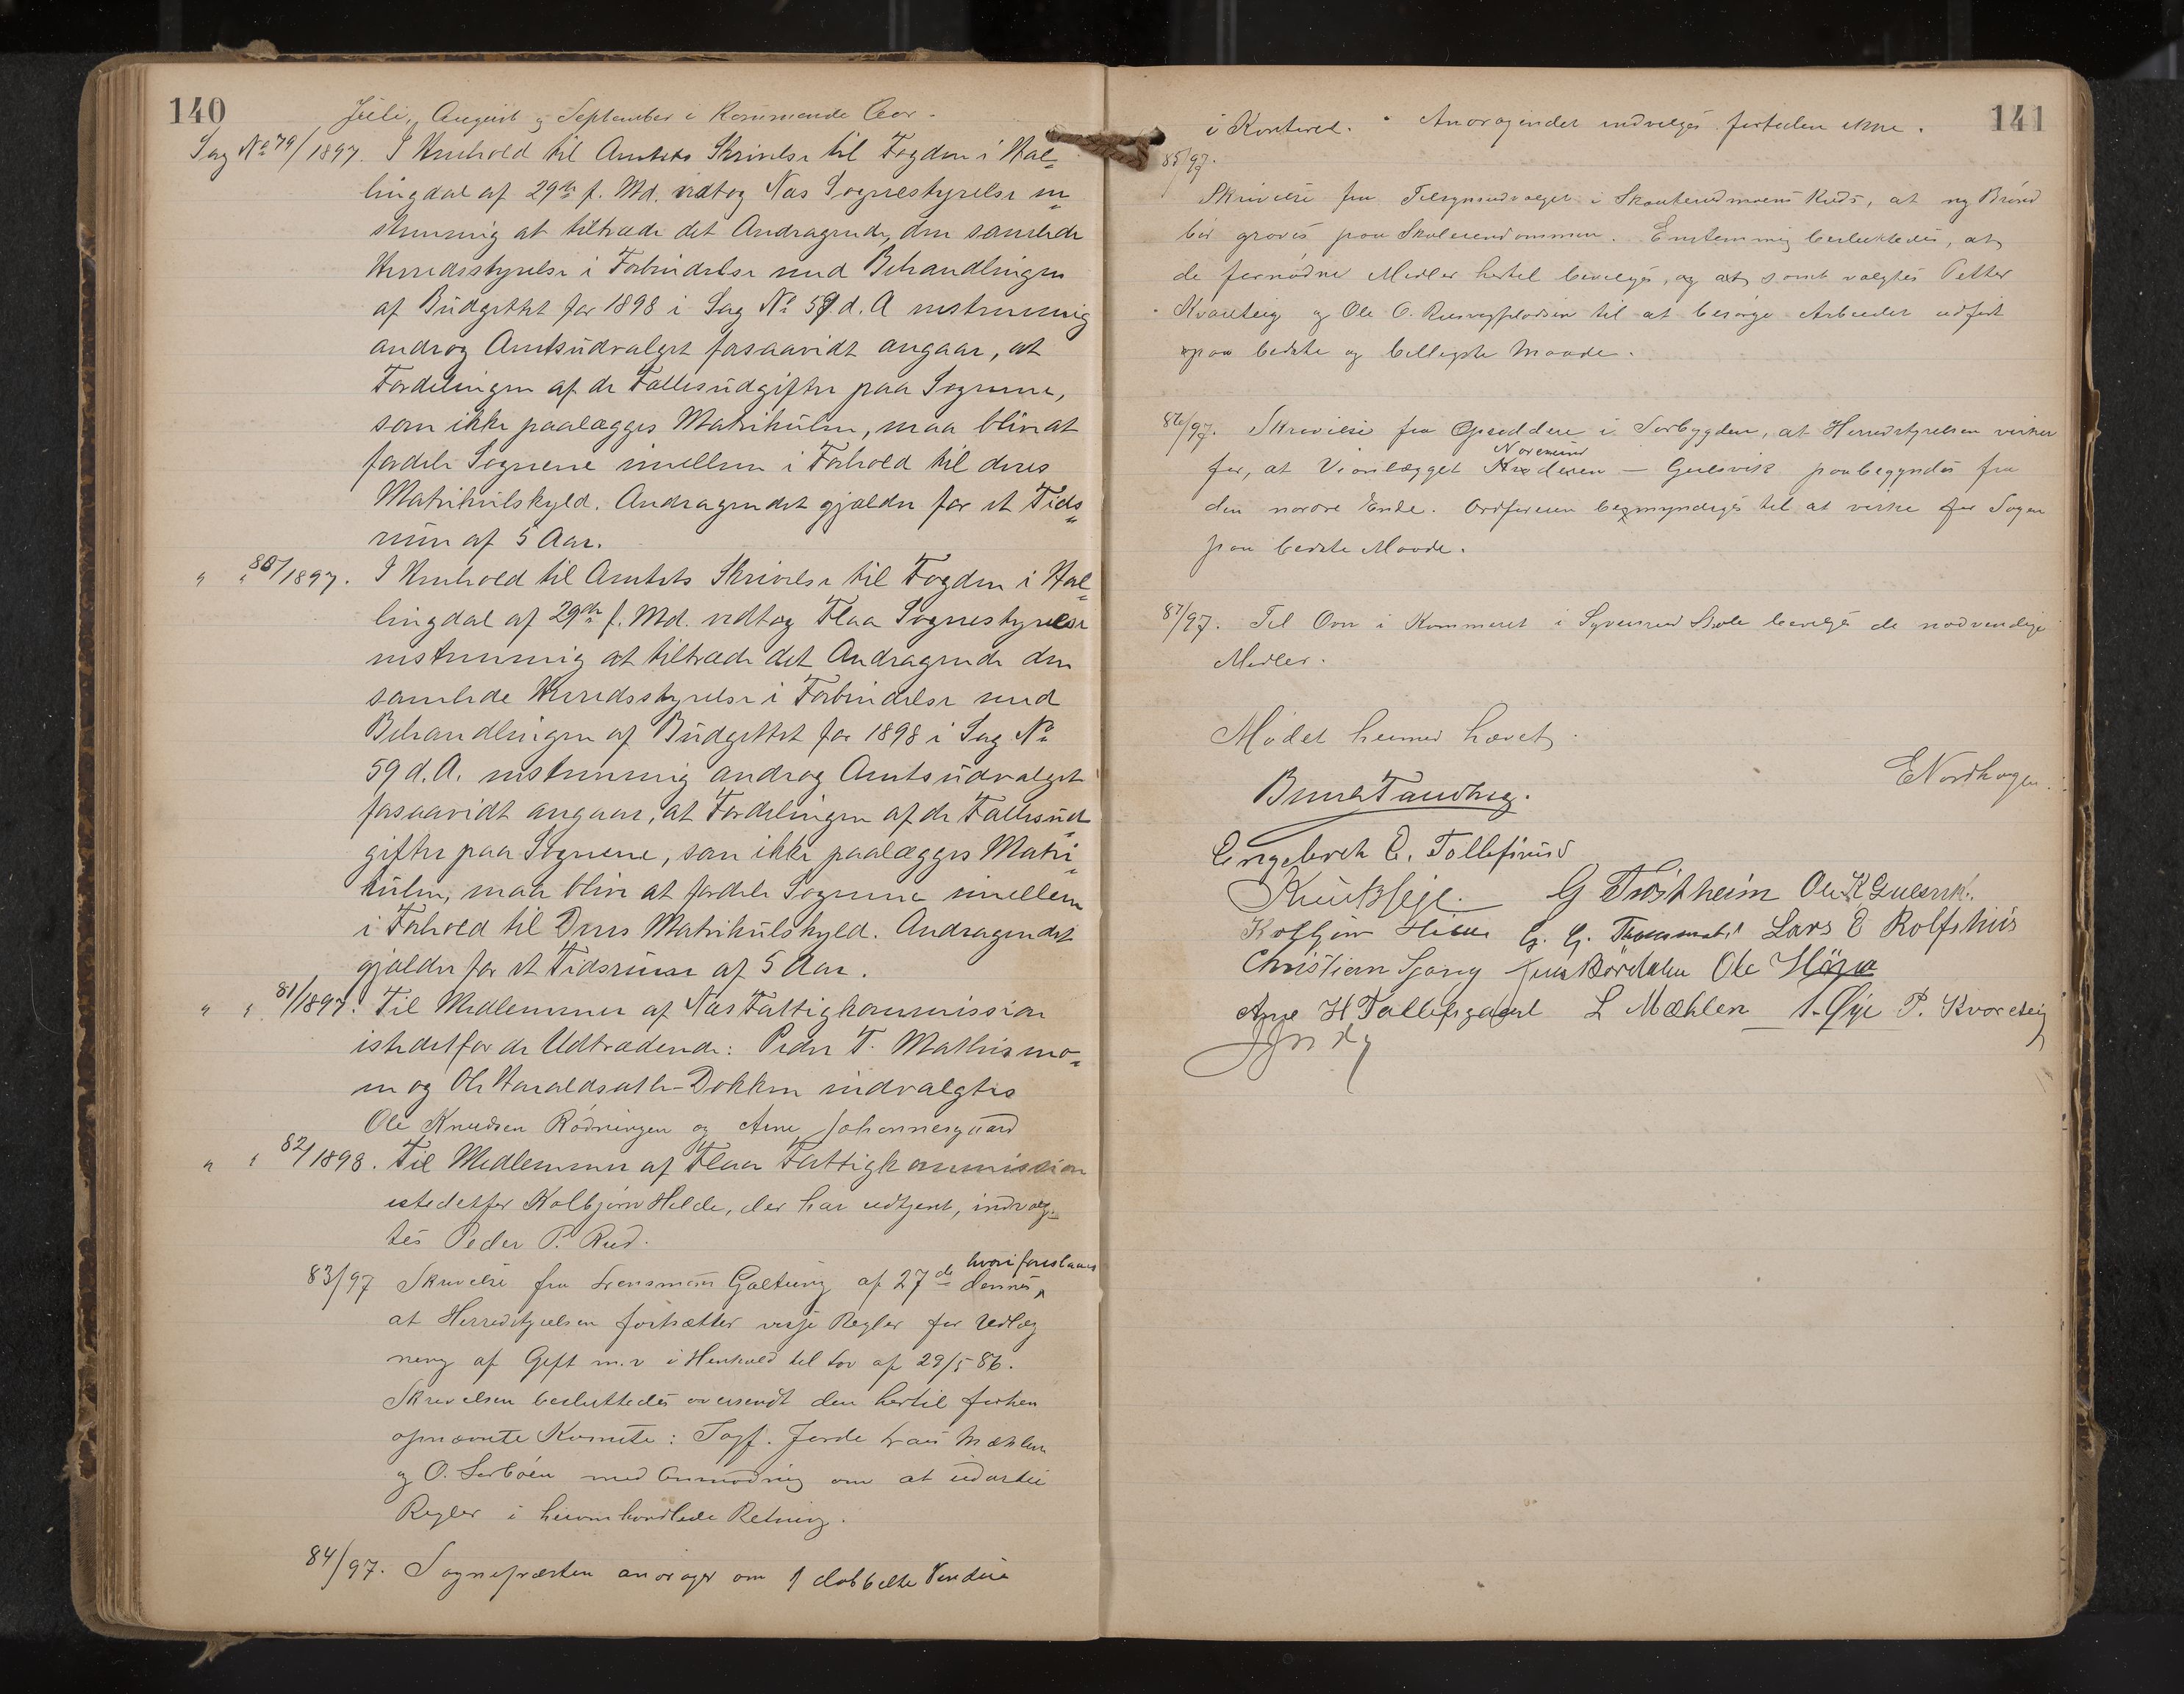 140
Juli, August og September i kommende Aar.
Sag No 79/1897. I Henhold til Amtets Skrivelse til Fogden i Hal=
lingdal af 29de f. Md. vedtog Næs Sognestyrelse en=
stemmig at tiltræde det Andragende, den samlede
Herredsstyrelse i Forbindelse med Behandlingen
af Budgettet for 1898 i Sag No 59 d. A. enstemmig
androg Amtsudvalget forsaavidt angaar, at
Fordelingen af de Fællesudgifter paa Sognene,
som ikke paalægges Matrikulen, maa blive at
fordele Sognene imellem i Forhold til deres
Matrikulskyld. Andragendet gjælder for et Tids=
rum af 5 Aar.
" " 80/1897. I Henhold til Amtets Skrivelse til Fogden i Hal=
lingdal af 29de f. Md. vedtog Flaa Sognestyrelse
enstemmig at tiltræde det Andragende den
samlede Herredsstyrelse i Forbindelse med
Behandlingen af Budgettet for 1898 i Sag No
59 d. A. enstemmig androg Amtsudvalget
forsaavidt angaar, at Fordelingen af de Fællesud=
gifter paa Sognene, som ikke paalægges Matri=
kulen, maa blive at fordele Sognene imellem
i Forhold til Deres Matrikulskyld. Andragendet
gjælder for et Tidsrum af 5 Aar.
" " 81/1897. Til Medlemmer af Næs Fattigkommission
istedetfor de Udtrædende: Peder T. Mathismo=
en og Ole Haraldsæth-Dokken indvalgtes
Ole Knudsen Rödningen og Arne Johannesgaard
" " 82/1898. Til Medlemmer af Flaa Fattigkommission
istedetfor Kolbjørn Helde, der har udtjent, indvalg=
tes Peder P. Rud.
hvori foreslaaes
83/97 Skrivelse fra Lensmann Galtung af 27de dennes,
at Herredstyrelsen fortsætter visse Regler for Udlæg
ning af Gift m.v i Henhold til Lov af 29/5 86.
Skrivelsen besluttedes oversendt den hertil forhen
opnævnte Komite: Sogf. Jorde Lars Mæhlen
og O. Serbøen med Anmodning om at udarbeide
Regler i heromhandlede Retning.
84/97. Sognepræsten andrager om 1 dobbelte Vinduer
141
i Kontoret. Andragendet indvilges fortiden ikke.
85/97.
Skrivelse fra Tilsynsudvalget i Skouterudmoens Kreds, at ny Brönd
bör graves paa Skoleeiendommen. Enstemmig besluttedes, at
de fornødne Midler hertil bevilges, og at samt valgtes Petter
Kvarteig og Ole O. til at besørge Arbeidet udført
paa bedste og billigste Maade.
86/97. Skrivelse fra Opsiddere i Sørbygden, at Herredstyrelsen virker
Noresund
for, at Veianlægget Krøderen — Gulsvik paabegyndes fra
den nordre Ende. Ordføreren bemyndiges til at virke for Sagen
paa bedste Maade.
87/97. Til Ovn i Kammeret i Skole bevilges de nødvendige
Midler.
Mødet hermed hævet.
E Nordhagen.
Bernt Tandberg.
Engebret E. Tollefsrud
Knut G Trostheim Ole K Gulsvik.
Kolbjørn Helde G. G. Lars E Rolfshus
Christian Sjong Jens Bördalen Ole
Arne H Tollefsgaard L Mæhlen P. Kvarteig